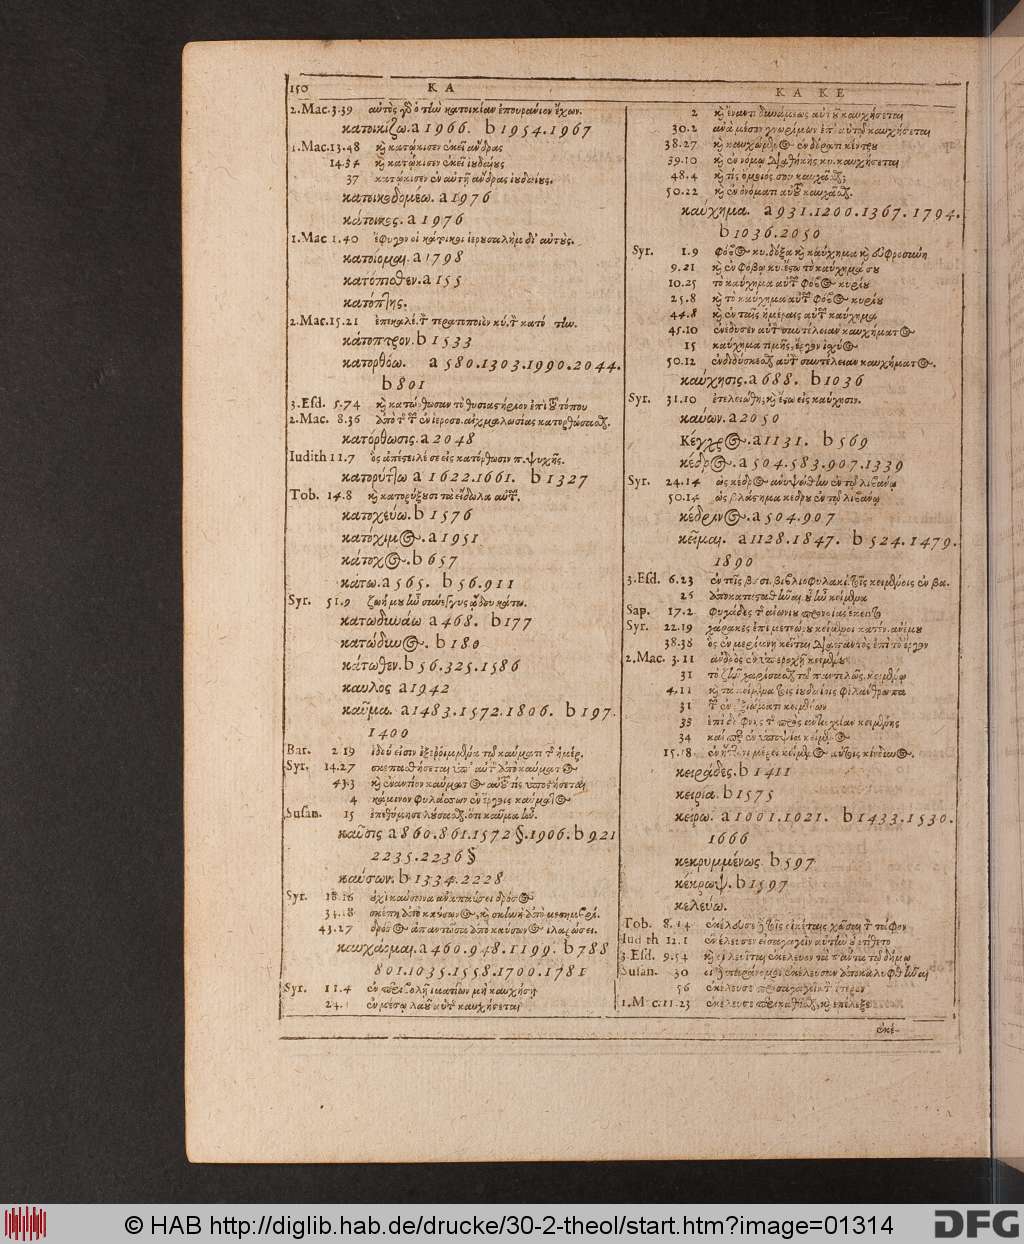 150 ΚΑ
2.Mac.3.39 αὐτὸς ὁ τὴν κατοικίαν ἐπουράνιον ἔχων.
κατοικίζω. a 1966. b 1954.1967
1.Mac.13.48 καὶ κατῴκισεν ἐκεῖ ἄνδρας
14.34 καὶ κατῴκισεν ἐκεῖ ἰουδαίους
37 κατῴκισεν ἐν αὐτῇ ἄνδρας ἰουδαίους.
κατοικοδομέω. a 1976
κάτοικος. a 1976
1.Mac 1.40 ἔφυγον οἱ κάτοικοι ἱερουσαλὴμ δι' αὐτούς.
κατοίομαι. a 1798
κατόπισθεν. a 155
κατόπτης.
2.Mac.15.21
κάτοπτρον. b 1533
κατορθόω. a 580.1303.1990.2044.
b 801
3.Esd. 5.74
2.Mac. 8.36
κατόρθωσις. a 2048
Iudith 11.7 ὃς ἀπέστειλέ σε εἰς κατόρθωσιν π. ψυχῆς.
κατορύττω a 1622.1661. b 1327
Tob. 14.8 καὶ κατορύξουσι τὰ εἴδωλα αὐτῶν.
κατοχεύω. b 1576
κατόχιμος. a 1951
κάτοχος. b 657
κάτω. a 565. b 56.911
Syr. 51.9 ζωή μου ἦν σύνεγγυς ᾅδου κάτω.
κατωδυνάω a 468. b 177
κατώδυνος. b 180
κάτωθεν. b 56.325.1586
καυλος a 1942
καῦμα. a 1483.1572.1806. b 197.
1400
Bar. 2 19
Syr. 14.27 σκεπασθήσεται ὑπ' αὐτῆς ἀπὸ καύματος
43.3 καὶ ἐναντίον καύματος αὐτοῦ τίς ὑποστήσεται
4 κάμινον φυλάσσων ἐν ἔργοις καύματος
Susan. 15 ἐπεθύμησε λούσασθαι ὅτι καῦμα ἦν.
καῦσις a 860.861.1572 §.1906. b 921
2235.2236 §
καύσων. b 1334.2228
Syr. 18.16 οὐχὶ καύσωνα ἀναπαύσει δρόσος
34.18 σκέπη ἀπὸ καύσωνος, καὶ σκηνὴ ἀπὸ μεσημβρί.
43.27 δρόσος ἀπαντῶσα ἀπὸ καύσωνος ἱλαρώσει.
καυχάομαι. a 460.948.1199. b 788
801.1035.1558.1700.1781
Syr. 11.4 ἐν περιβολῇ ἱματίων μὴ καυχήσῃ
24. ἐν μέσῳ λαοῦ αὐτῆς καυχήσεται
ΚΑ ΚΕ
2 καὶ ἔναντι δυνάμεως αὐτοῦ καυχήσεται
30.2 ἀνὰ μέσον γνωρίμων ἐπ' αὐτῷ καυχήσεται
38.27 καὶ καυχώμενος ἐν δόρατι κέντρου
39.10 καὶ ἐν νόμῳ διαθήκης κυ. καυχήσεται
48.4 καὶ τίς ὅμοιός σοι καυχᾶσθαι;
50.22 καὶ ἐν ὀνόματι αὐτοῦ καυχᾶσθαι.
καύχημα. a 931.1200.1367.1794.
b 1036.2050
Syr. 1.9 φόβος κυ. δόξα καὶ καύχημα καὶ εὐφροσύνη
9.21 καὶ ἐν φόβῳ κυ. ἔστω τὸ καύχημά σου
10.25 τὸ καύχημα αὐτῶν φόβος κυρίου
25.8 καὶ τὸ καύχημα αὐτῶν φόβος κυρίου
44.8 καὶ ἐν ταῖς ἡμέραις αὐτῶν καύχημα
45.10 ἐνέδυσεν αὐτὸν συντέλειαν καυχήματος
15 καύχημα τιμῆς, ἔργον ἰσχύος
50.12 ἐνδιδύσκεσθαι αὐτὸν συντέλειαν καυχήματος.
καύχησις. a 688. b 1036
Syr. 31.10 ἐτελειώθη; καὶ ἔστω εἰς καύχησιν.
καύων. a 2050
Κέγχρος. a 1131. b 569
κέδρος. a 504.583.907.1339
Syr. 24.14 ὡς κέδρος ἀνυψώθην ἐν τῷ λιβάνῳ
50.14 ὡς βλάστημα κέδρου ἐν τῷ λιβάνῳ
κέδρινος. a 504.907
κεῖμαι. a 1128.1847. b 524.1479.
1890
3.Esd. 6.23 ἐν τοῖς βασι. βιβλιοφυλακί. τοῖς κειμένοις ἐν βα.
26 ἀποκατασταθῆναι οὗ ἦν κείμενα
Sap. 17.2 φυγάδες τῆς αἰωνίου προνοίας ἔκειντο
Syr. 22.19 χάρακες ἐπὶ μετεώρου κείμενοι κατέν. ἀνέμου
38.38 ὃς ἐν μερίμνῃ κεῖται διαπαντὸς ἐπὶ τὸ ἔργον
2.Mac. 3.11 ἀνδρὸς ἐν ὑπεροχῇ κειμένου
31 τὸ ζῆν χαρίσασθαι τῷ παντελῶς. κειμένῳ
4.11 καὶ τὰ κείμενα τοῖς ἰουδαίοις φιλάνθρωπα
31 τῶν ἐν ἀξιώματι κειμένων
33 ἐπὶ δάφνης τῆς πρὸς ἀντιοχίαν κειμένης
34 καίπερ ἐν ὑποψίᾳ κείμενος
15.18 ἐν ἥττονι μέρει κείμενος αὐτοῖς κίνδυνος.
κειράδες. b 1411
κειρία. b 1575
κείρω. a 1001.1021. b 1433.1530.
1666
κεκρυμμένως. b 597
κέκρωψ. b 1597
κελεύω.
Tob. 8.14 ἐκέλευσε τοῖς οἰκέταις χῶσαι τὸν τάφον
Iudith 12.1 ἐκέλευσεν εἰσαγαγεῖν αὐτὴν οὗ ἐτίθετο
3.Esd. 9.54
Susan. 30 οἱ παράνομοι ἐκέλευσαν ἀποκαλυφθῆναι
56 ἐκέλευσε προσαγαγεῖν τὸν ἕτερον
1.Mac.11.23 ἐκέλευσε περικαθῆσθαι, καὶ ἐπέλεξε
ἐκέ-
© HAB http://diglib.hab.de/drucke/30-2-theol/start.htm?image=01314
DFG